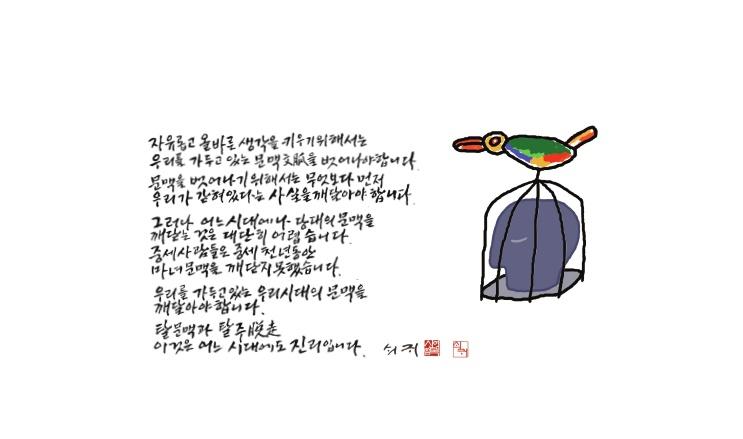 자유롭고 올바른 생각을 키우기위해서는
우리를 가두고 있는 문맥文脈을 벗어나야합니다.
문맥을 벗어나기위해서는 무엇보다 먼저
우리가 갇혀있다는 사실을 깨달아야 합니다.
그러나 어느시대에나 당대의 문맥을
깨닫는 것은 대단히 어렵습니다.
중세사람들은 중세 천년동안
마녀문맥을 깨닫지못했습니다.
우리를 가두고있는 우리시대의 문맥을
깨달아야합니다.
탈문맥과 탈주脫走
이것은 어느 시대에도 진리입니다. 쇠귀